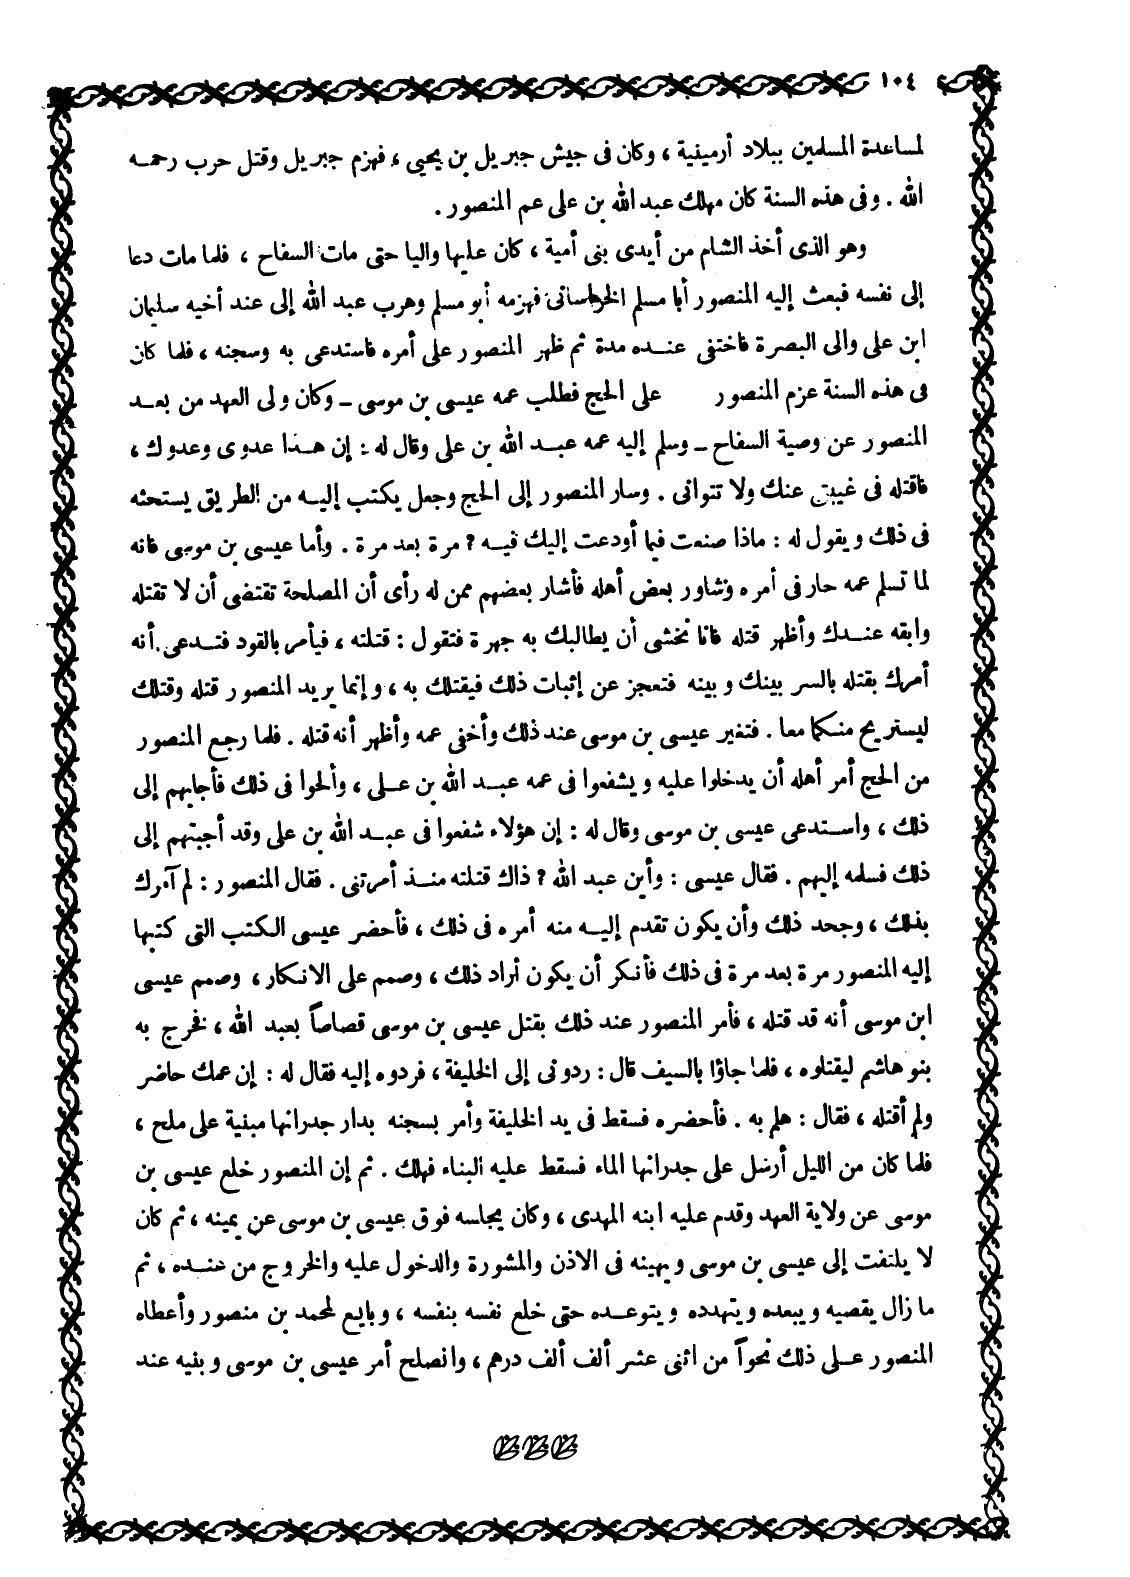 ١٠٤
لمساعدة المسلمين ببلاد أرمينية ، وكان فى جيش جبريل بن يحيى ، فهزم جبريل وقتل حرب رحمـه
الله . وفى هذه السنة كان مهلك عبد الله بن على عم المنصور .
وهو الذى أخذ الشام من أيدى بنى أمية ، كان عليها واليا حتى مات السفاح ، فلما مات دعا
إلى نفسه فبعث إليه المنصور أبا مسلم الخراسانى فهزمه أبو مسلم وهرب عبد الله إلى عند أخيه سليمان
ابن على والى البصرة فاختفى عنـده مدة ثم ظهر المنصور على أمره فاستدعى به وسجنه ، فلما كان
فى هذه السنة عزم المنصور على الحج فطلب عمه عيسى بن موسى ـ وكان ولى العهد من بعـد
المنصور عن وصية السفاح ـ وسلم إليه عمه عبـد الله بن على وقال له : إن هـذا عدوى وعدوك ،
فاقتله فى غيبتى عنك ولا تتوانى . وسار المنصور إلى الحج وجعل يكتب إليـه من الطريق يستحثه
فى ذلك ويقول له : ماذا صنعت فيما أودعت إليك فيـه ? مرة بعد مرة . وأما عيسى بن موسى فانه
لما تسلم عمه حار فى أمره وشاور بعض أهله فأشار بعضهم ممن له رأى أن المصلحة تقتضى أن لا تقتله
وابقه عنـدك وأظهر قتله فانا نخشى أن يطالبك به جهرة فتقول : قتلته ، فيأمر بالقود فتـدعى أنه
أمرك بقتله بالسر بينك وبينه فتعجز عن إثبات ذلك فيقتلك به ، وإنما يريد المنصور قتله وقتلك
ليستريح منكما معا . فتغير عيسى بن موسى عند ذلك وأخفى عمه وأظهر أنه قتله . فلما رجع المنصور
من الحج أمر أهله أن يدخلوا عليه ويشفعوا فى عمه عبـد الله بن عـلى ، وألحوا فى ذلك فأجابهم إلى
ذلك ، واسـتدعى عيسى بن موسى وقال له : إن هؤلاء شفعوا فى عبـد الله بن على وقد أجبتهم إلى
ذلك فسلمه إليهم . فقال عيسى : وأين عبد الله ? ذاك قتلته منـذ أمرتنى . فقال المنصور : لم آمرك
بذلك ، وجحد ذلك وأن يكون تقدم إليـه منه أمره فى ذلك ، فأحضر عيسى الكتب التى كتبها
إليه المنصور مرة بعد مرة فى ذلك فأنكر أن يكون أراد ذلك ، وصمم على الانكار ، وصمم عيسى
ابن موسى أنه قد قتله ، فأمر المنصور عند ذلك بقتل عيسى بن موسى قصاصاً بعبد الله ، فخرج به
بنو هاشم ليقتلوه ، فلما جاؤا بالسيف قال : ردونى إلى الخليفة ، فردوه إليه فقال له : إن عمك حاضر
ولم أقتله ، فقال : هلم به . فأحضره فسقط فى يد الخليفة وأمر بسجنه بدار جدرانها مبنية على ملح ،
فلما كان من الليل أرسل على جدرانها الماء فسقط عليه البناء فهلك . ثم إن المنصور خلع عيسى بن
موسى عن ولاية العهد وقدم عليه ابنه المهدى ، وكان يجلسه فوق عيسى بن موسى عن يمينه ، ثم كان
لا يلتفت إلى عيسى بن موسى ويهينه فى الاذن والمشورة والدخول عليه والخروج من عنـده ، ثم
ما زال يقصيه ويبعده ويتهدده ويتوعـده حتى خلع نفسه بنفسه ، وبايع لمحمد بن منصور وأعطاه
المنصور عـلى ذلك نحواً من اثنى عشر ألف ألف درهم ، وانصلح أمر عيسى بن موسى وبنيه عند